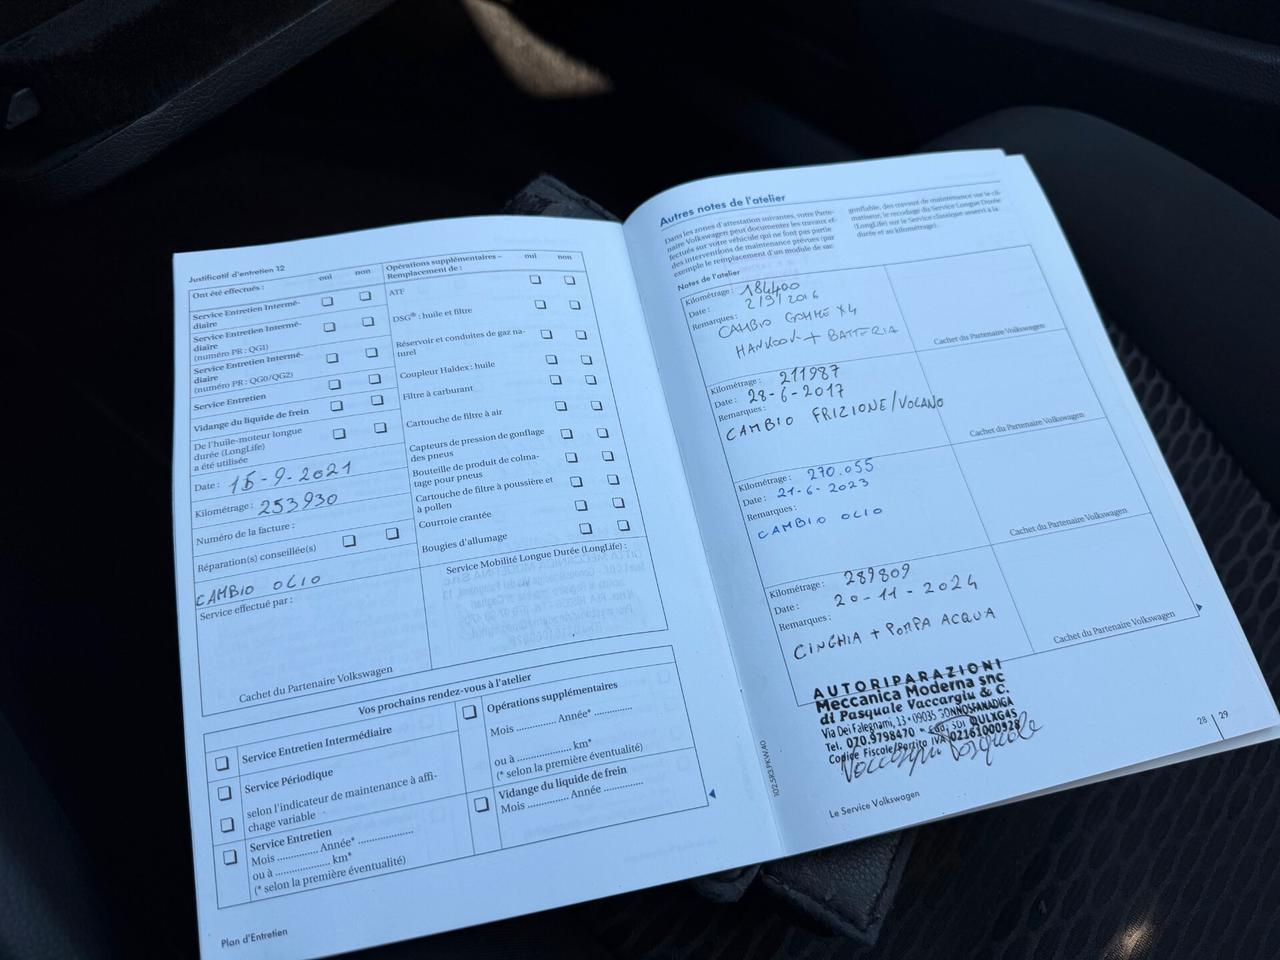 Justificatif d'entretien 12
Ont été effectués :
oui non
Service Entretien Intermé-
diaire
Service Entretien Intermé-
diaire
(numéro PR : QG1)
Service Entretien Intermé-
diaire
(numéro PR : QG0/QG2)
Service Entretien
Vidange du liquide de frein
De l'huile-moteur longue
durée (LongLife)
a été utilisée
Date : 15-9-2021
Kilométrage : 253930
Numéro de la facture :
Réparation(s) conseillée(s)
CAMBIO OLIO
Service effectué par :
Cachet du Partenaire Volkswagen
Opérations supplémentaires –
Remplacement de :
oui non
ATF
DSG® : huile et filtre
Réservoir et conduites de gaz na-
turel
Coupleur Haldex : huile
Filtre à carburant
Cartouche de filtre à air
Capteurs de pression de gonflage
des pneus
Bouteille de produit de colma-
tage pour pneus
Cartouche de filtre à poussière et
à pollen
Courroie crantée
Bougies d'allumage
Service Mobilité Longue Durée (LongLife) :
Vos prochains rendez-vous à l'atelier
Service Entretien Intermédiaire
Service Périodique
selon l'indicateur de maintenance à affi-
chage variable
Service Entretien
Mois ............... Année* ..................
ou à .................. km*
(* selon la première éventualité)
Opérations supplémentaires
Mois ............. Année* .............
ou à .................. km*
(* selon la première éventualité)
Vidange du liquide de frein
Mois ............. Année ...............
Plan d'Entretien
Autres notes de l'atelier
Dans les zones d'attestation suivantes, votre Parte-
naire Volkswagen peut documenter les travaux ef-
fectués sur votre véhicule qui ne font pas partie
des interventions de maintenance prévues (par
exemple le remplacement d'un module de sac
gonflable, des travaux de maintenance sur le cli-
matiseur, le recodage du Service Longue Durée
(LongLife) sur le Service classique asservi à la
durée et au kilométrage).
Notes de l'atelier
Kilométrage : 184400
Date : 2/9/2016
Remarques :
CAMBIO GOMME X4
HANKOOK + BATTERIA
Cachet du Partenaire Volkswagen
Kilométrage : 211987
Date : 28-6-2017
Remarques :
CAMBIO FRIZIONE/VOLANO
Cachet du Partenaire Volkswagen
Kilométrage : 270.055
Date : 21-6-2023
Remarques :
CAMBIO OLIO
Cachet du Partenaire Volkswagen
Kilométrage : 289809
Date : 20-11-2024
Remarques :
CINGHIA + POMPA ACQUA
Cachet du Partenaire Volkswagen
AUTORIPARAZIONI
Meccanica Moderna snc
di Pasquale Vaccargiu & C.
Via Dei Falegnami, 13 - 09035 GONNOSFANADIGA
Tel. 070.9798470 - Cod. SDI
Codice Fiscale/Partita IVA 02161000928
Vaccargiu Pasquale
28 29
102.5R3.PKW.40
Le Service Volkswagen